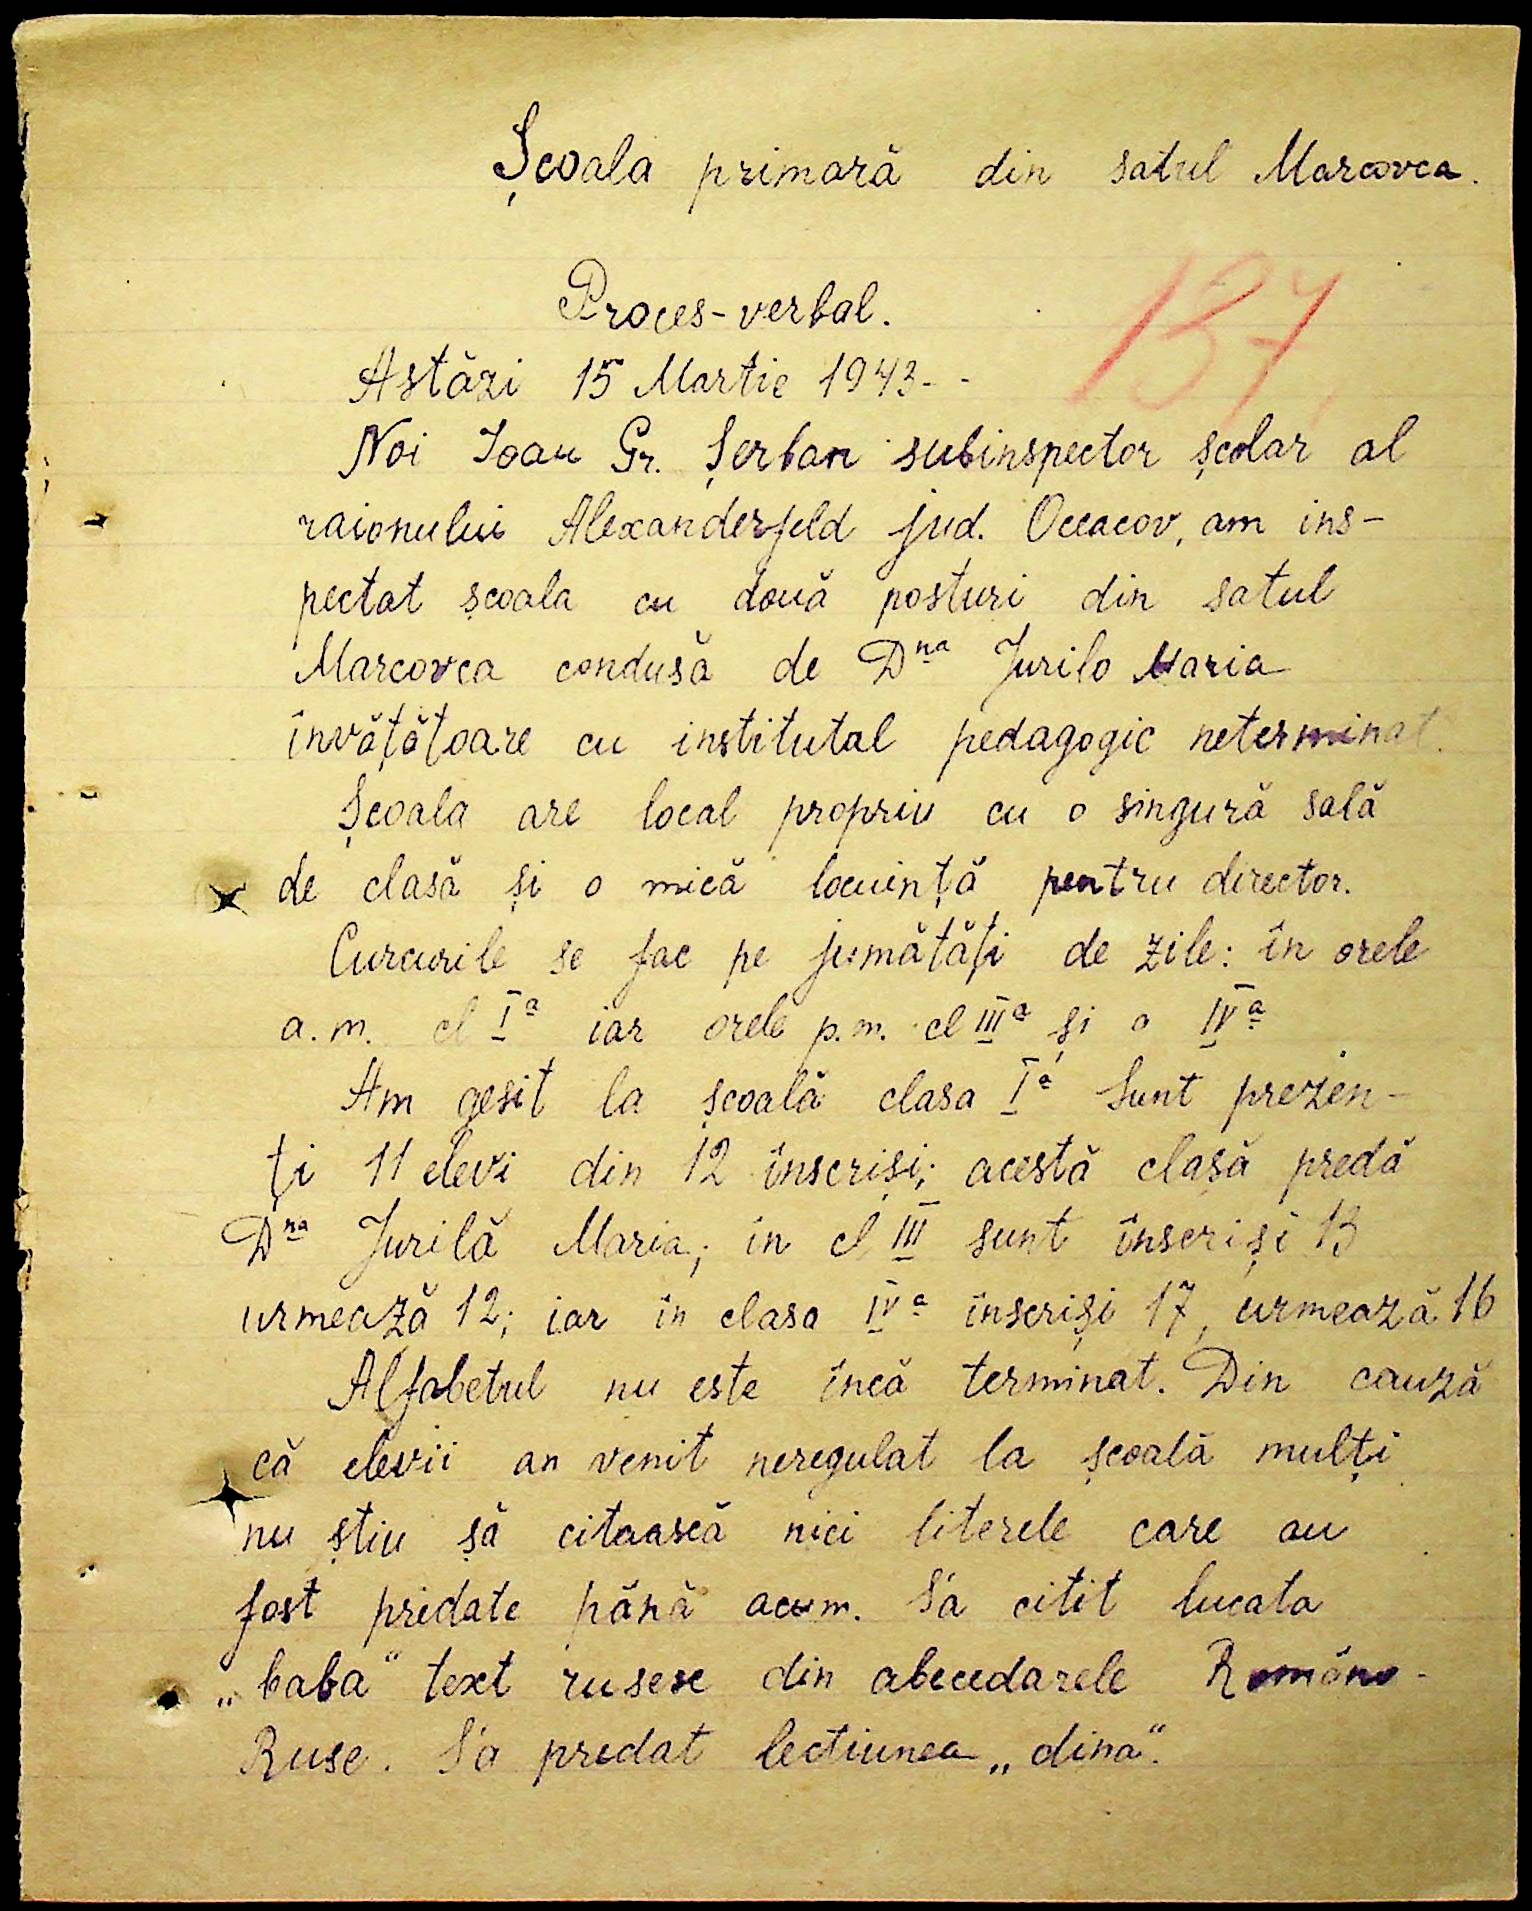 Școala primară din satul Marcovca.
137,
Proces-verbal.
Astăzi 15 Martie 1943. -
Noi Ioan Gr. Șerban subinspector școlar al
raionului Alexanderfeld jud. Oceacov, am ins-
pectat școala cu două posturi din satul
Marcovca condusă de Dna Jurilo Maria
învățătoare cu institutal pedagogic neterminat.
Școala are local propriu cu o singură sală
de clasă și o mică locuință pentru director.
Curcurile se fac pe jumătăți de zile: în orele
a.m. cl Ia iar orele p.m. cl IIIa și a IVa
Am gesit la școală clasa Ia Sunt prezen-
ți 11 elevi din 12 înscriși; acestă clasă predă
Dna Jurilă Maria; in cl III sunt înscriși 13
urmează 12; iar în clasa IVa înscriși 17, urmează 16
Alfabetul nu este încă terminat. Din cauză
că elevii an venit neregulat la școală mulți
nu știu să citaască nici literele care au
fost predate până acum. S'a citit bucata
„baba" text rusesc din abecedarele Româno-
Ruse. S'a predat lectiunea „dina".